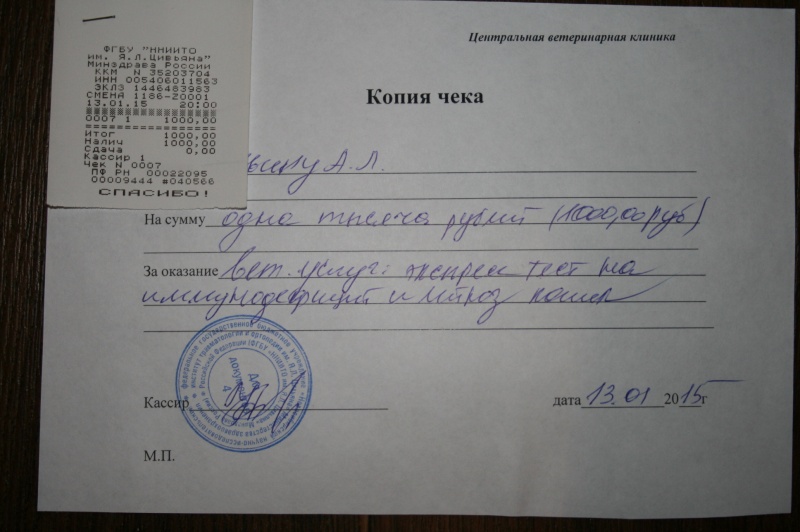 ФГБУ "ННИИТО
им. Я.Л.Цивьяна"
Минздрава России
ККМ N 35203704
ИНН 005406011563
ЭКЛЗ 1446483983
СМЕНА 1186-20001
13.01.15 20:00
0007 1 1000,00
Итог 1000,00
Налич 1000,00
Сдача 0,00
Кассир 1
Чек N 0007
ПФ РН 00022095
00009444 #040566
СПАСИБО!
Центральная ветеринарная клиника
Копия чека
А.Л.
На сумму одна тысяча рублей (1000,00 руб)
За оказание вет. услуг: экспресс тест на
иммунодефицит и лейкоз кошек
Кассир
дата 13.01 2015г
М.П.
Для
документов
4